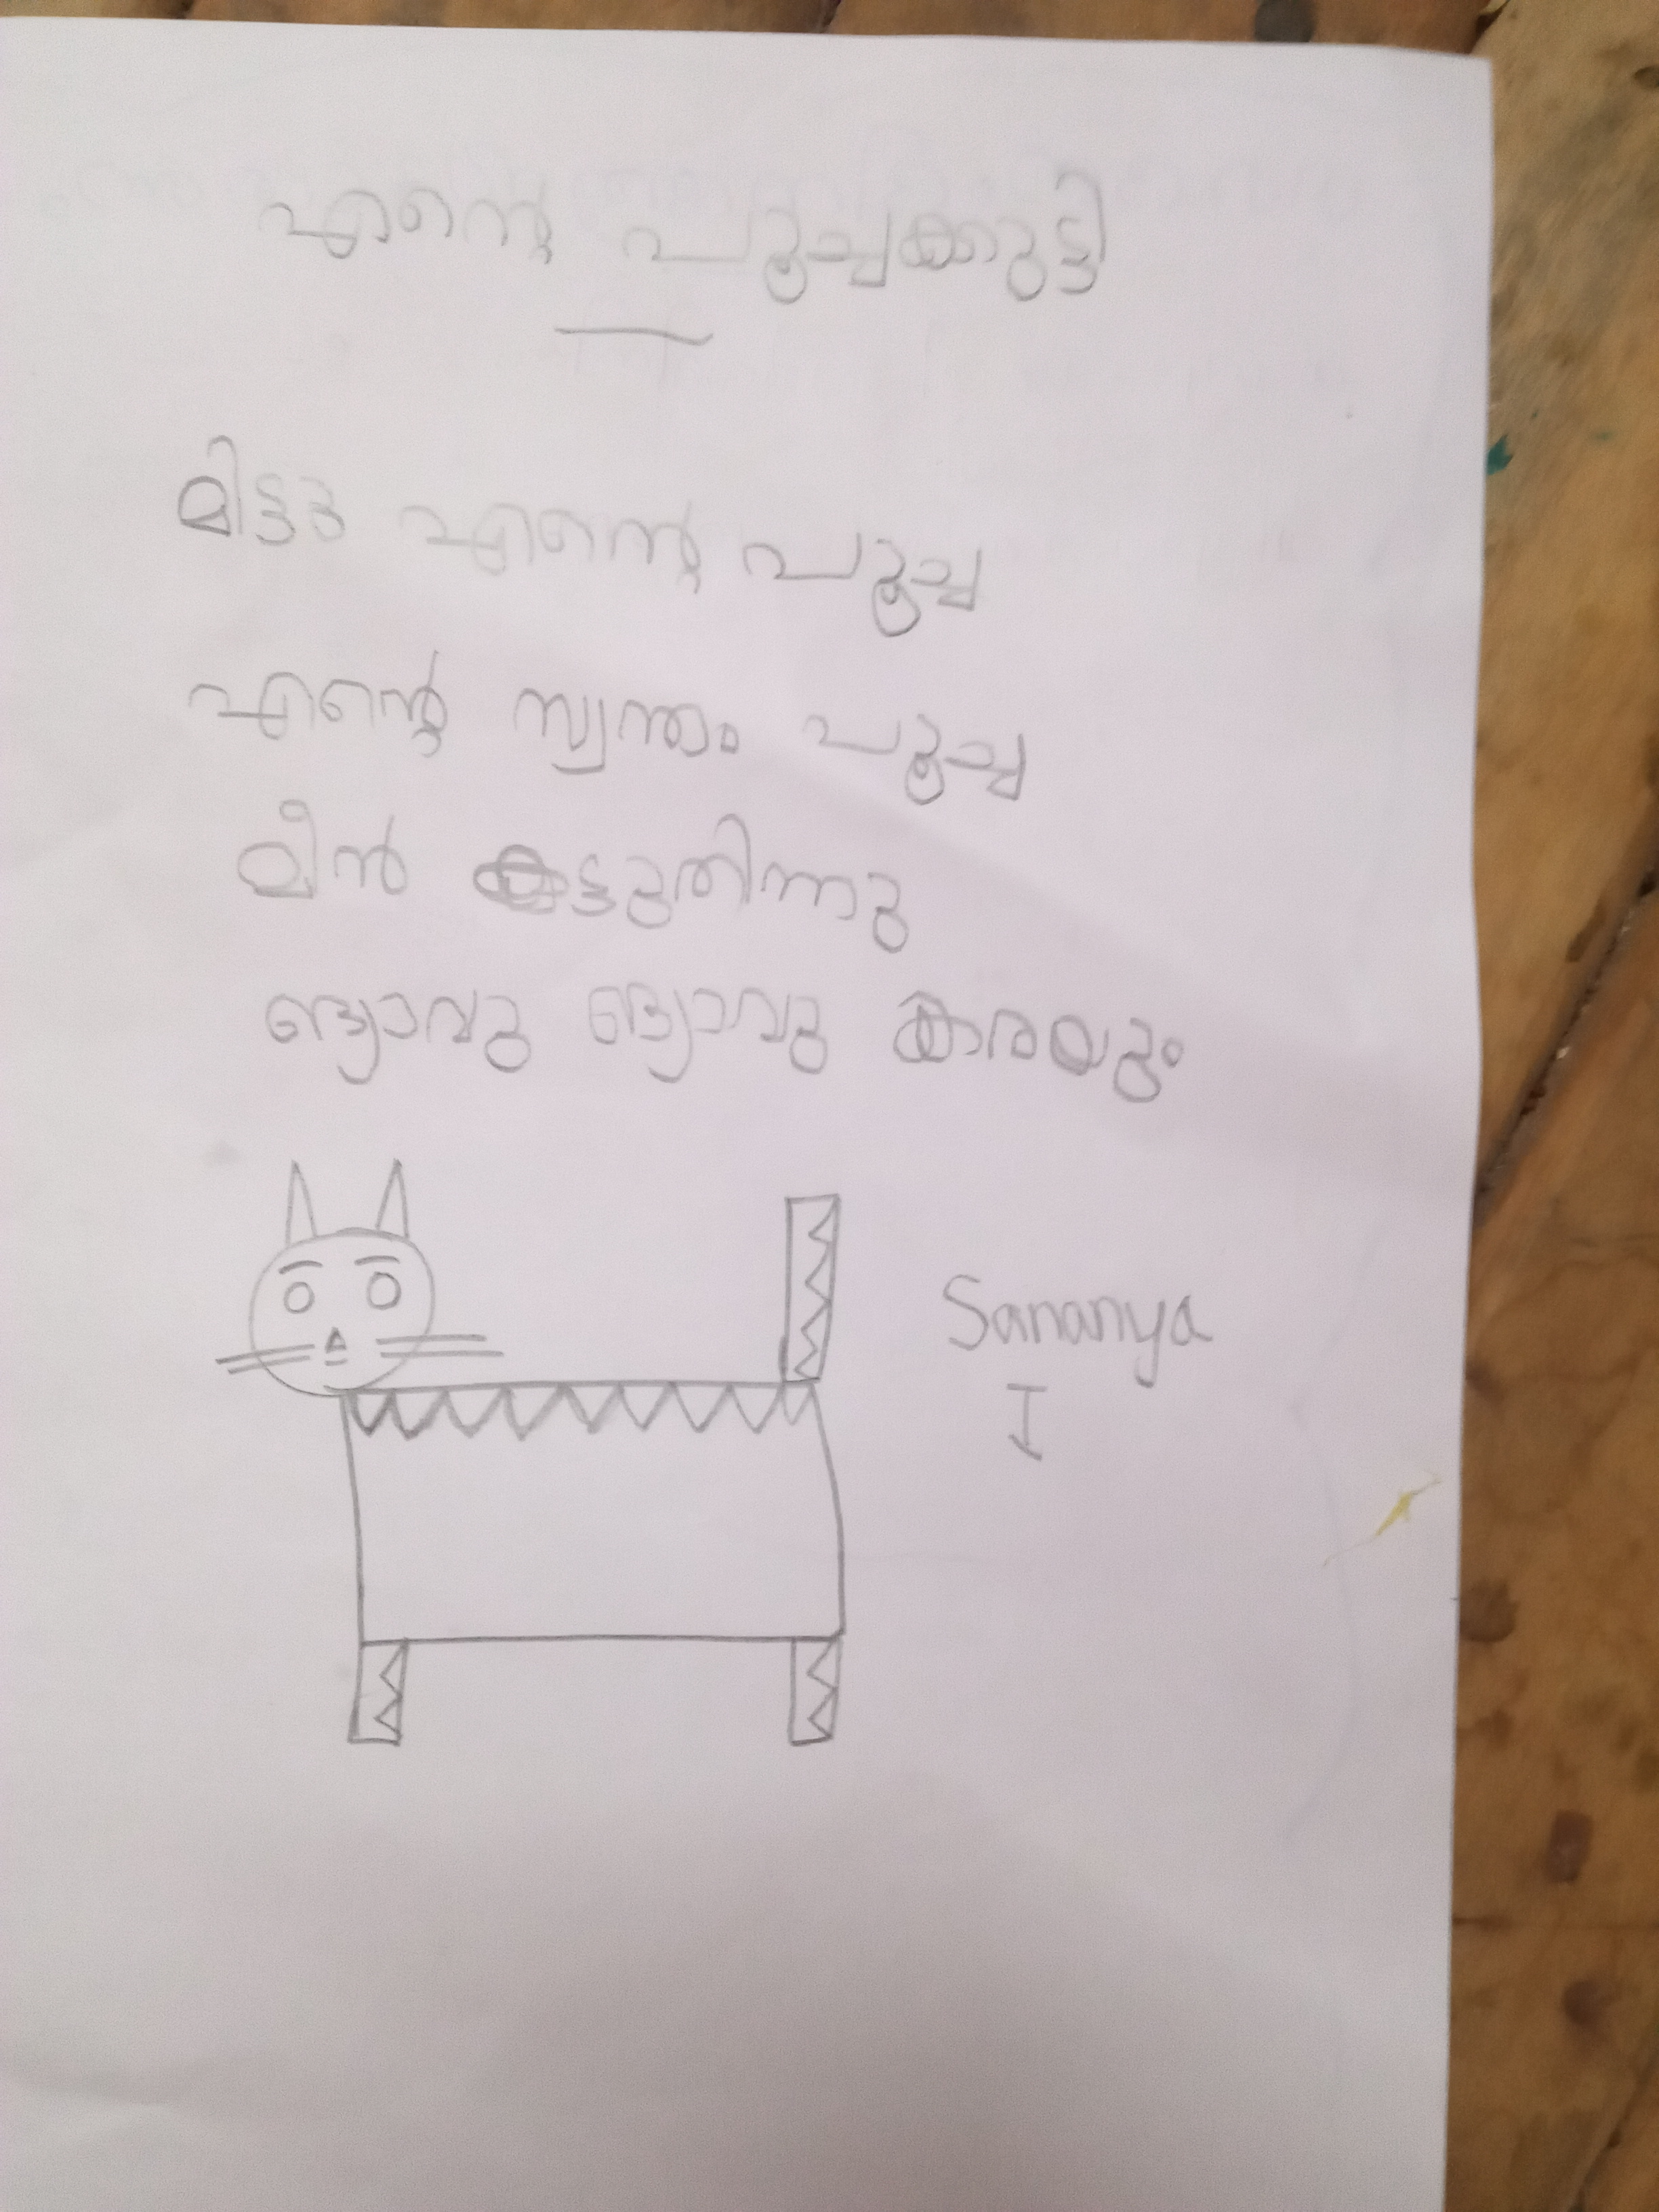 എന്റെ പൂച്ചക്കുട്ടി
മിട്ടു എന്റെ പൂച്ച
എന്റെ സ്വന്തം പൂച്ച
മീൻ കട്ടുതിന്നു
മ്യാവു മ്യാവു കരയും
Sananya
I